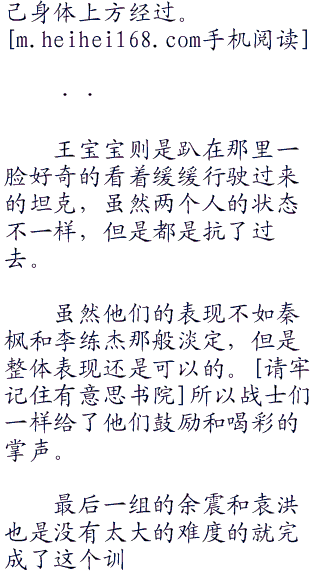 己身体上方经过。
[m.heihei168.com手机阅读]
. .
王宝宝则是趴在那里一
脸好奇的看着缓缓行驶过来
的坦克，虽然两个人的状态
不一样，但是都是抗了过
去。
虽然他们的表现不如秦
枫和李练杰那般淡定，但是
整体表现还是可以的。[请牢
记住有意思书院]所以战士们
一样给了他们鼓励和喝彩的
掌声。
最后一组的余震和袁洪
也是没有太大的难度的就完
成了这个训